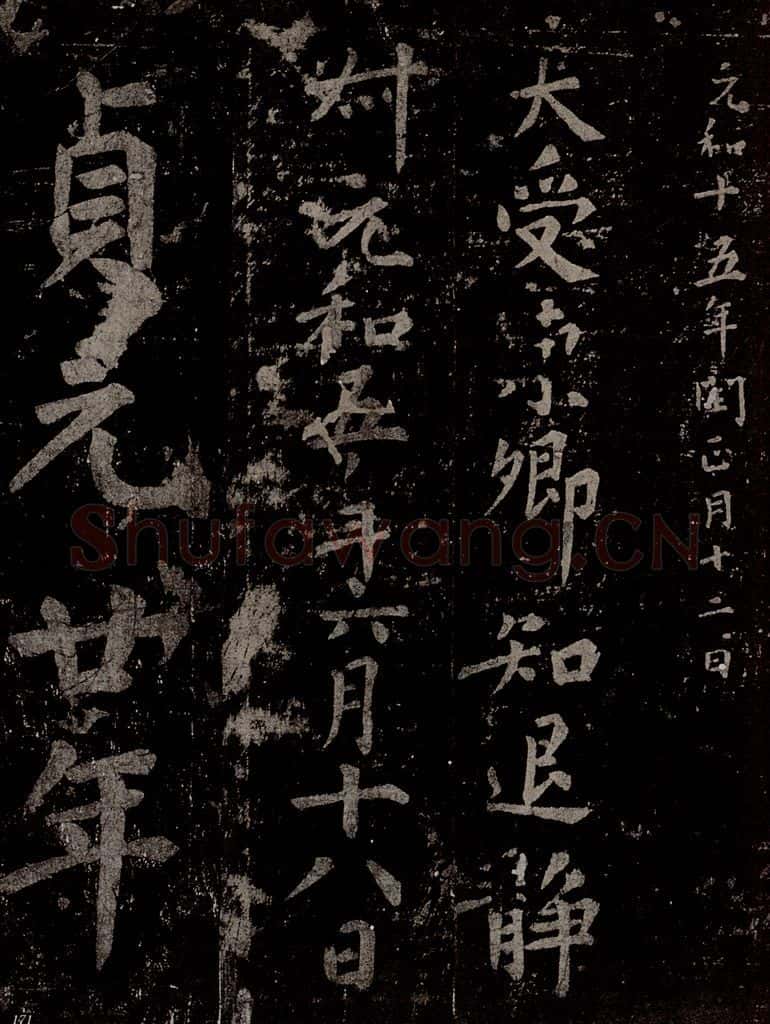 元和十五年閏正月十二日
大受少卿知退静
元和五年六月十八日
貞元廿年
Shufawang.CN
171